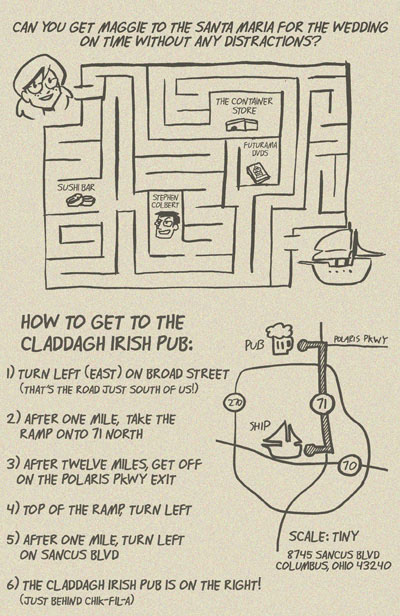 CAN YOU GET MAGGIE TO THE SANTA MARIA FOR THE WEDDING
ON TIME WITHOUT ANY DISTRACTIONS?
THE CONTAINER
STORE
FUTURAMA
DVDS
SUSHI BAR
STEPHEN
COLBERT
HOW TO GET TO THE
CLADDAGH IRISH PUB:
1) TURN LEFT (EAST) ON BROAD STREET
(THAT'S THE ROAD JUST SOUTH OF US!)
2) AFTER ONE MILE, TAKE THE
RAMP ONTO 71 NORTH
3) AFTER TWELVE MILES, GET OFF
ON THE POLARIS PKWY EXIT
4) TOP OF THE RAMP, TURN LEFT
5) AFTER ONE MILE, TURN LEFT
ON SANCUS BLVD
6) THE CLADDAGH IRISH PUB IS ON THE RIGHT!
(JUST BEHIND CHIK-FIL-A)
PUB
POLARIS PKWY
270
71
SHIP
70
SCALE: TINY
8745 SANCUS BLVD
COLUMBUS, OHIO 43240